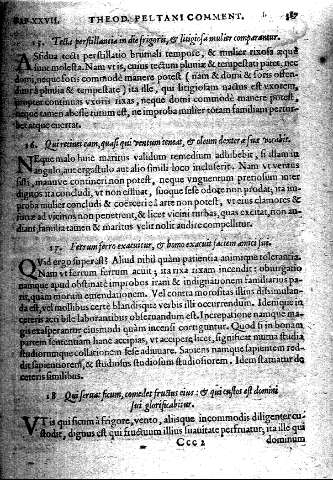 CAP. XXVII. THEOD. PELTANI COMMENT. 387
15. Tecta perstillantia in die frigoris, & litigiosa mulier comparantur.
ASsidua tecti perstillatio brumali tempore, & mulier rixosa æquè
sunt molesta. Nam vt is, cuius tectum pluuiæ & tempestati patet, nec
domi, neque foris commodè manere potest (nam & domi & foris offen-
ditur à pluuia & tempestate) ita ille, qui litigiosam nactus est vxorem,
propter continuas vxoris rixas, neque domi commodè manere potest,
neque tamen abesse tutum est, ne improba mulier totam familiam pertur-
bet atque euertat.
16. Qui retinet eam, quasi qui ventum teneat, & oleum dexteræ suæ vocabit.
NEque malo huic maritus validum remedium adhibebit, si illam in
angulo, aut ergastulo aut alio simili loco incluserit. Nam vt ventus
fisti, manuve contineri non potest, neque vnguentum pretiosum inter
digitos ita concludi, vt non effluat, suoque sese odore non prodat; ita im-
proba mulier concludi & coërceri eâ arte non potest, vt eius clamores &
iurgia ad vicinos non penetrent, & licet vicini turbas, quas excitat, non au-
diant, familia tamen & maritus velit nolit audire compellitur.
17. Ferrum ferro exacuitur, & homo exacuit faciem amici sui.
QVid ergo superest? Aliud nihil quàm patientia animique tolerantia.
Nam vt ferrum ferrum acuit; ita rixa rixam incendit: obiurgatio
namque apud obstinatè improbos iram & indignationem familiarius pa-
rit, quàm morum emendationem. Vel contra morositas illius dissimulan-
da est, vel mollibus certè blandisque verbis illi occurrendum. Idemque in
ceteris acri bile laborantibus obseruandum est. Increpatione namque ma-
gis exasperantur eiusmodi quàm incensi corriguntur. Quod si in bonam
partem sententiam hanc accipias, vt accipere licet, significat mutua studia,
studiorumque collationem sese adiuuare. Sapiens namque sapientem red-
dit sapientiorem, & studiosus studiosum studiosiorem. Idem statuitur de
ceteris similibus.
18 Qui seruat ficum, comedet fructus eius: & qui custos est domini
sui glorificabitur.
VT is qui ficum à frigore, vento, aliisque incommodis diligenter cu-
stodit, dignus est qui fructuum illius suauitate perfruatur, ita ille qui
Ccc 2 dominum